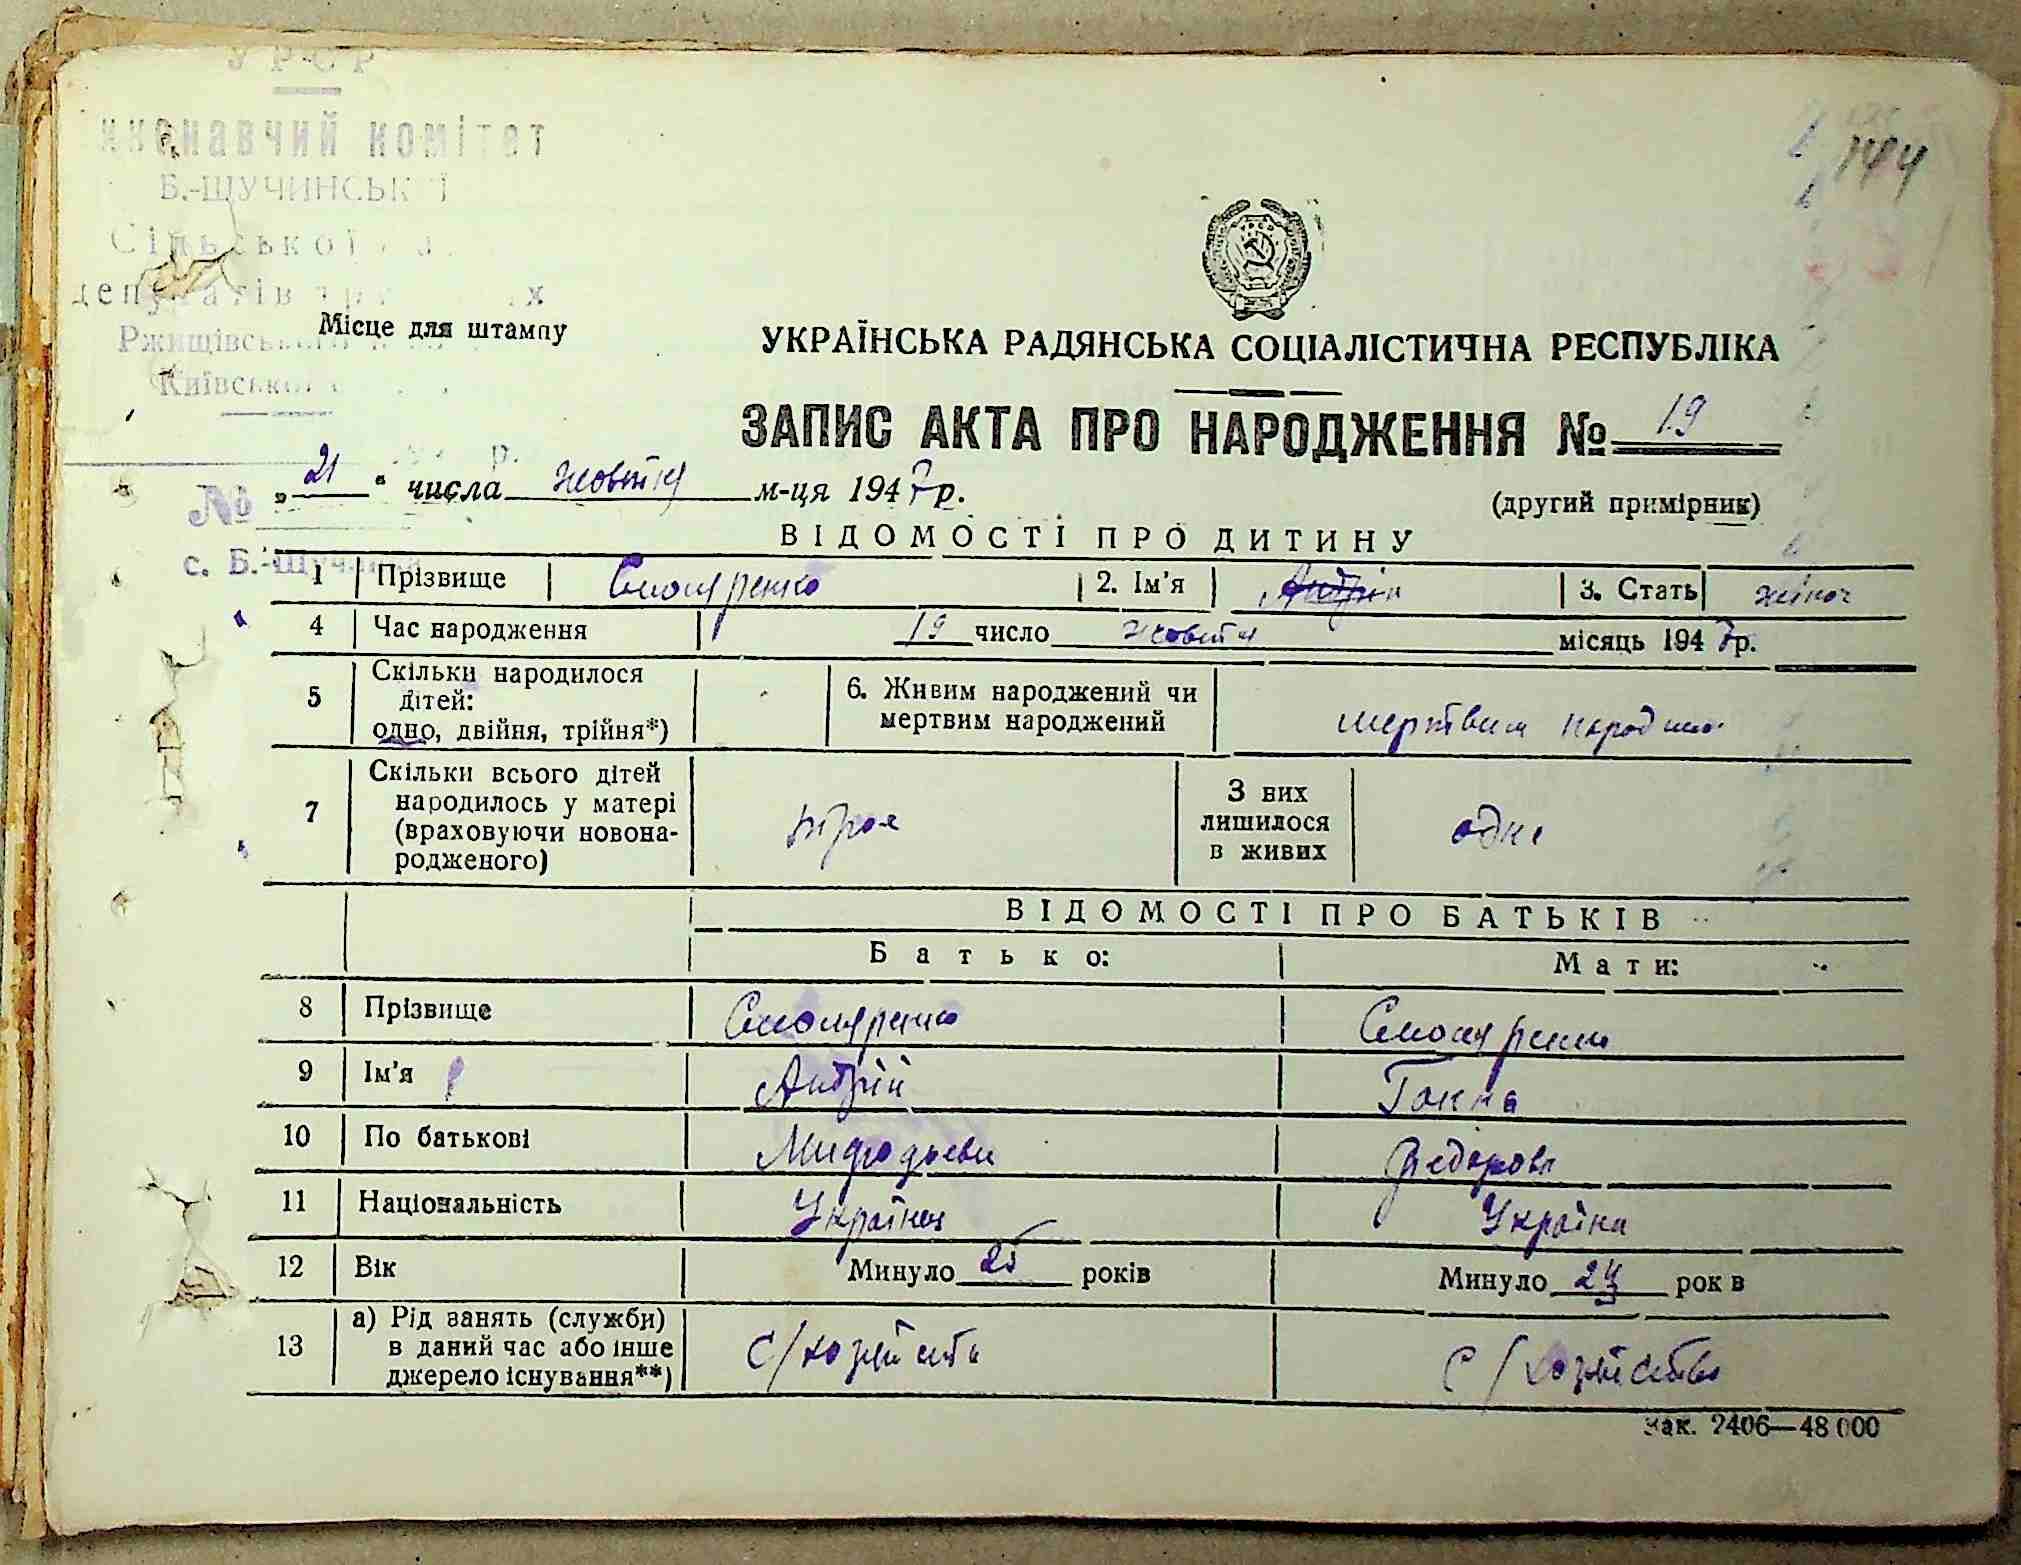 УРСР
Виконавчий комітет
Б.-ЩУЧИНСЬКОЇ
Сільської
депутатів
Ржищівського
Київської
Місце для штампу
144
УКРАЇНСЬКА РАДЯНСЬКА СОЦІАЛІСТИЧНА РЕСПУБЛІКА
ЗАПИС АКТА ПРО НАРОДЖЕННЯ № 19
„21“ числа жовтня м-ця 1947 р.
(другий примірник)
№
с. Б.-Щучинка
ВІДОМОСТІ ПРО ДИТИНУ
1 Прізвище 2. Ім'я Андрій 3. Стать жіноч
4 Час народження 19 число жовтня місяць 1947 р.
5 Скільки народилося дітей: одно, двійня, трійня*) 6. Живим народжений чи мертвим народжений мертвим
7 Скільки всього дітей народилось у матері (враховуючи новонародженого) троє З них лишилося в живих одне
ВІДОМОСТІ ПРО БАТЬКІВ
Батько: Мати:
8 Прізвище
9 Ім'я Андрій Ганна
10 По батькові
11 Національність Українец Україна
12 Вік Минуло 25 років Минуло 24 рок в
13 а) Рід занять (служби) в даний час або інше джерело існування**)
Зак. 2406—48 000